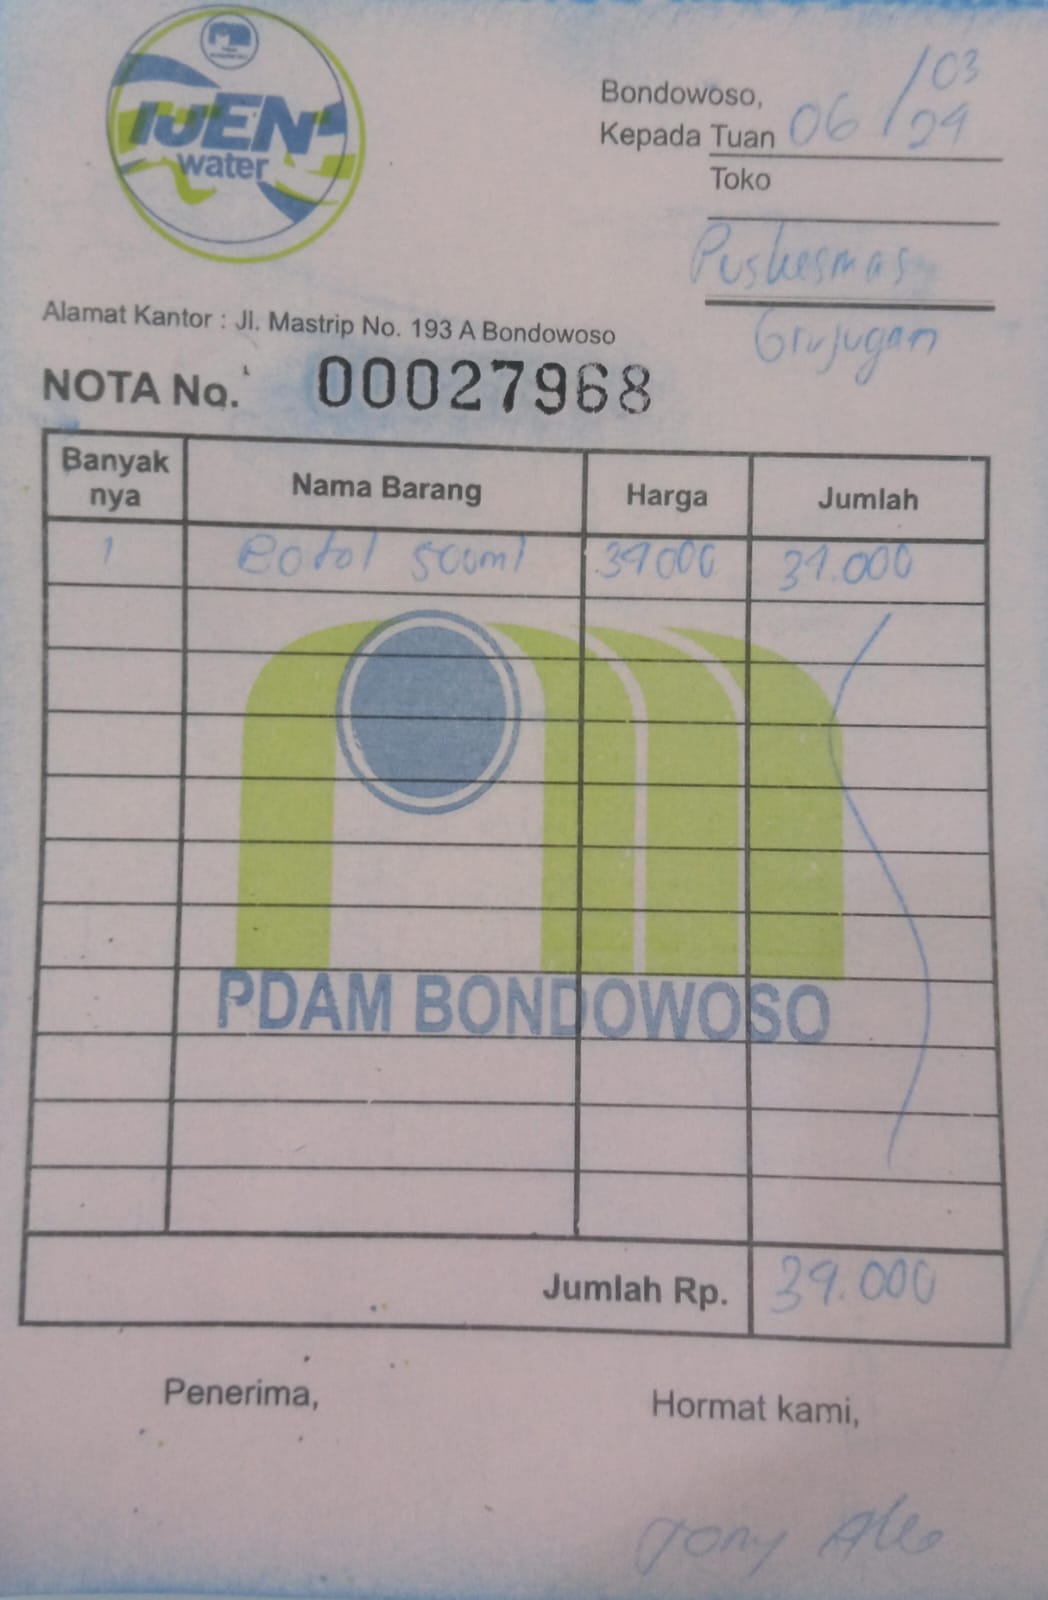 IJEN
water
Bondowoso, 06/03
24
Kepada Tuan
Toko
Puskesmas
Grujugan
Alamat Kantor : Jl. Mastrip No. 193 A Bondowoso
NOTA No. 00027968
Banyak nya Nama Barang Harga Jumlah
1 Botol 500ml 39000 39.000
PDAM BONDOWOSO
Jumlah Rp. 39.000
Penerima, Hormat kami,
Tony